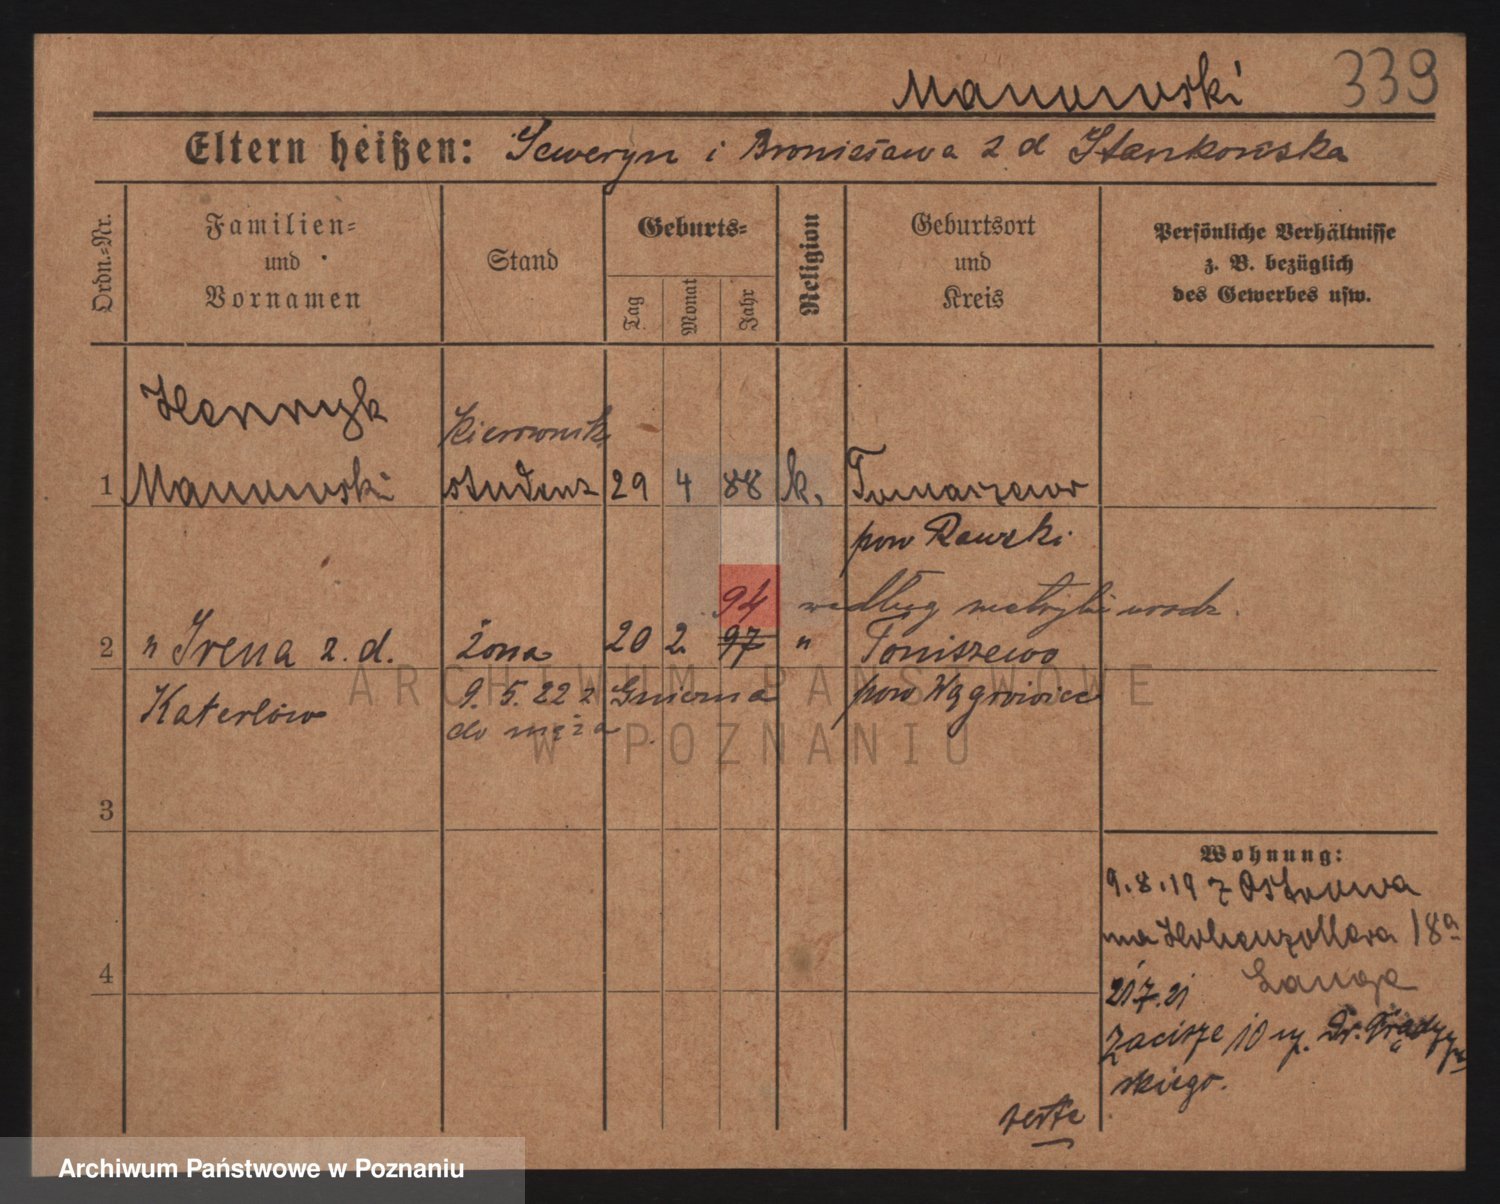 Manuwski 339
Eltern heißen: Seweryn i Bronisława z d Stankowska
Ordn.=Nr.
Familien=
und
Vornamen
Stand
Geburts=
Tag
Monat
Jahr
Religion
Geburtsort
und
Kreis
Persönliche Verhältnisse
z. B. bezüglich
des Gewerbes usw.
Henryk
Kierownik
1 student 29 4 88 k.
pow Rawski
94 według metryki urodz.
2 " Irena z. d. żona 20 2. 97 " Toniszewo
Katerlów 9. 5. 22 z Gniezna pow Wągrowiec
do męża
3
4
Wohnung:
9.8.19 z Ostrowa
na Hohenzollern 18a
21.7.21 Lange
Zacisze 10
skiego.
verte
ARCHIWUM PAŃSTWOWE
W POZNANIU
Archiwum Państwowe w Poznaniu